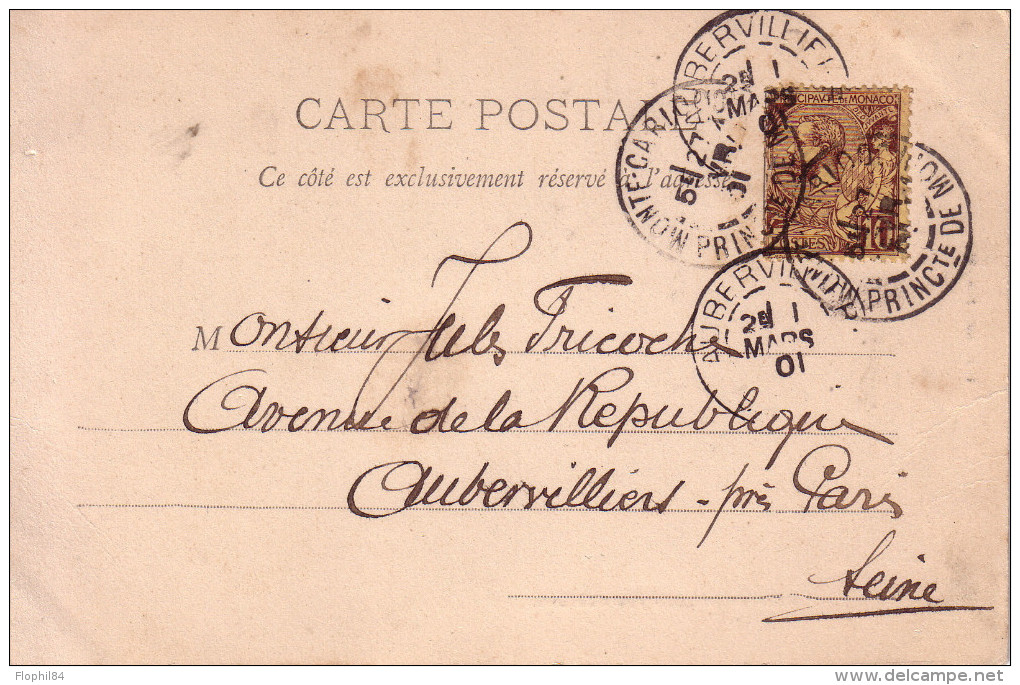 CARTE POSTA
Ce côté est exclusivement réservé à l'adresse
AUBERVILLIE
2E 1
MARS
01
MONTE-CARLO
5E 27
01
PRINCTE DE MO
CIPAUTÉ DE MONACO
10
POSTES
PRINCTE DE MO
AUBERVILLIE
2E 1
MARS
01
Monsieur Jules Tricoche
Avenue de la République
Aubervilliers - près Paris
Seine
Flophil84
www.delcampe.net